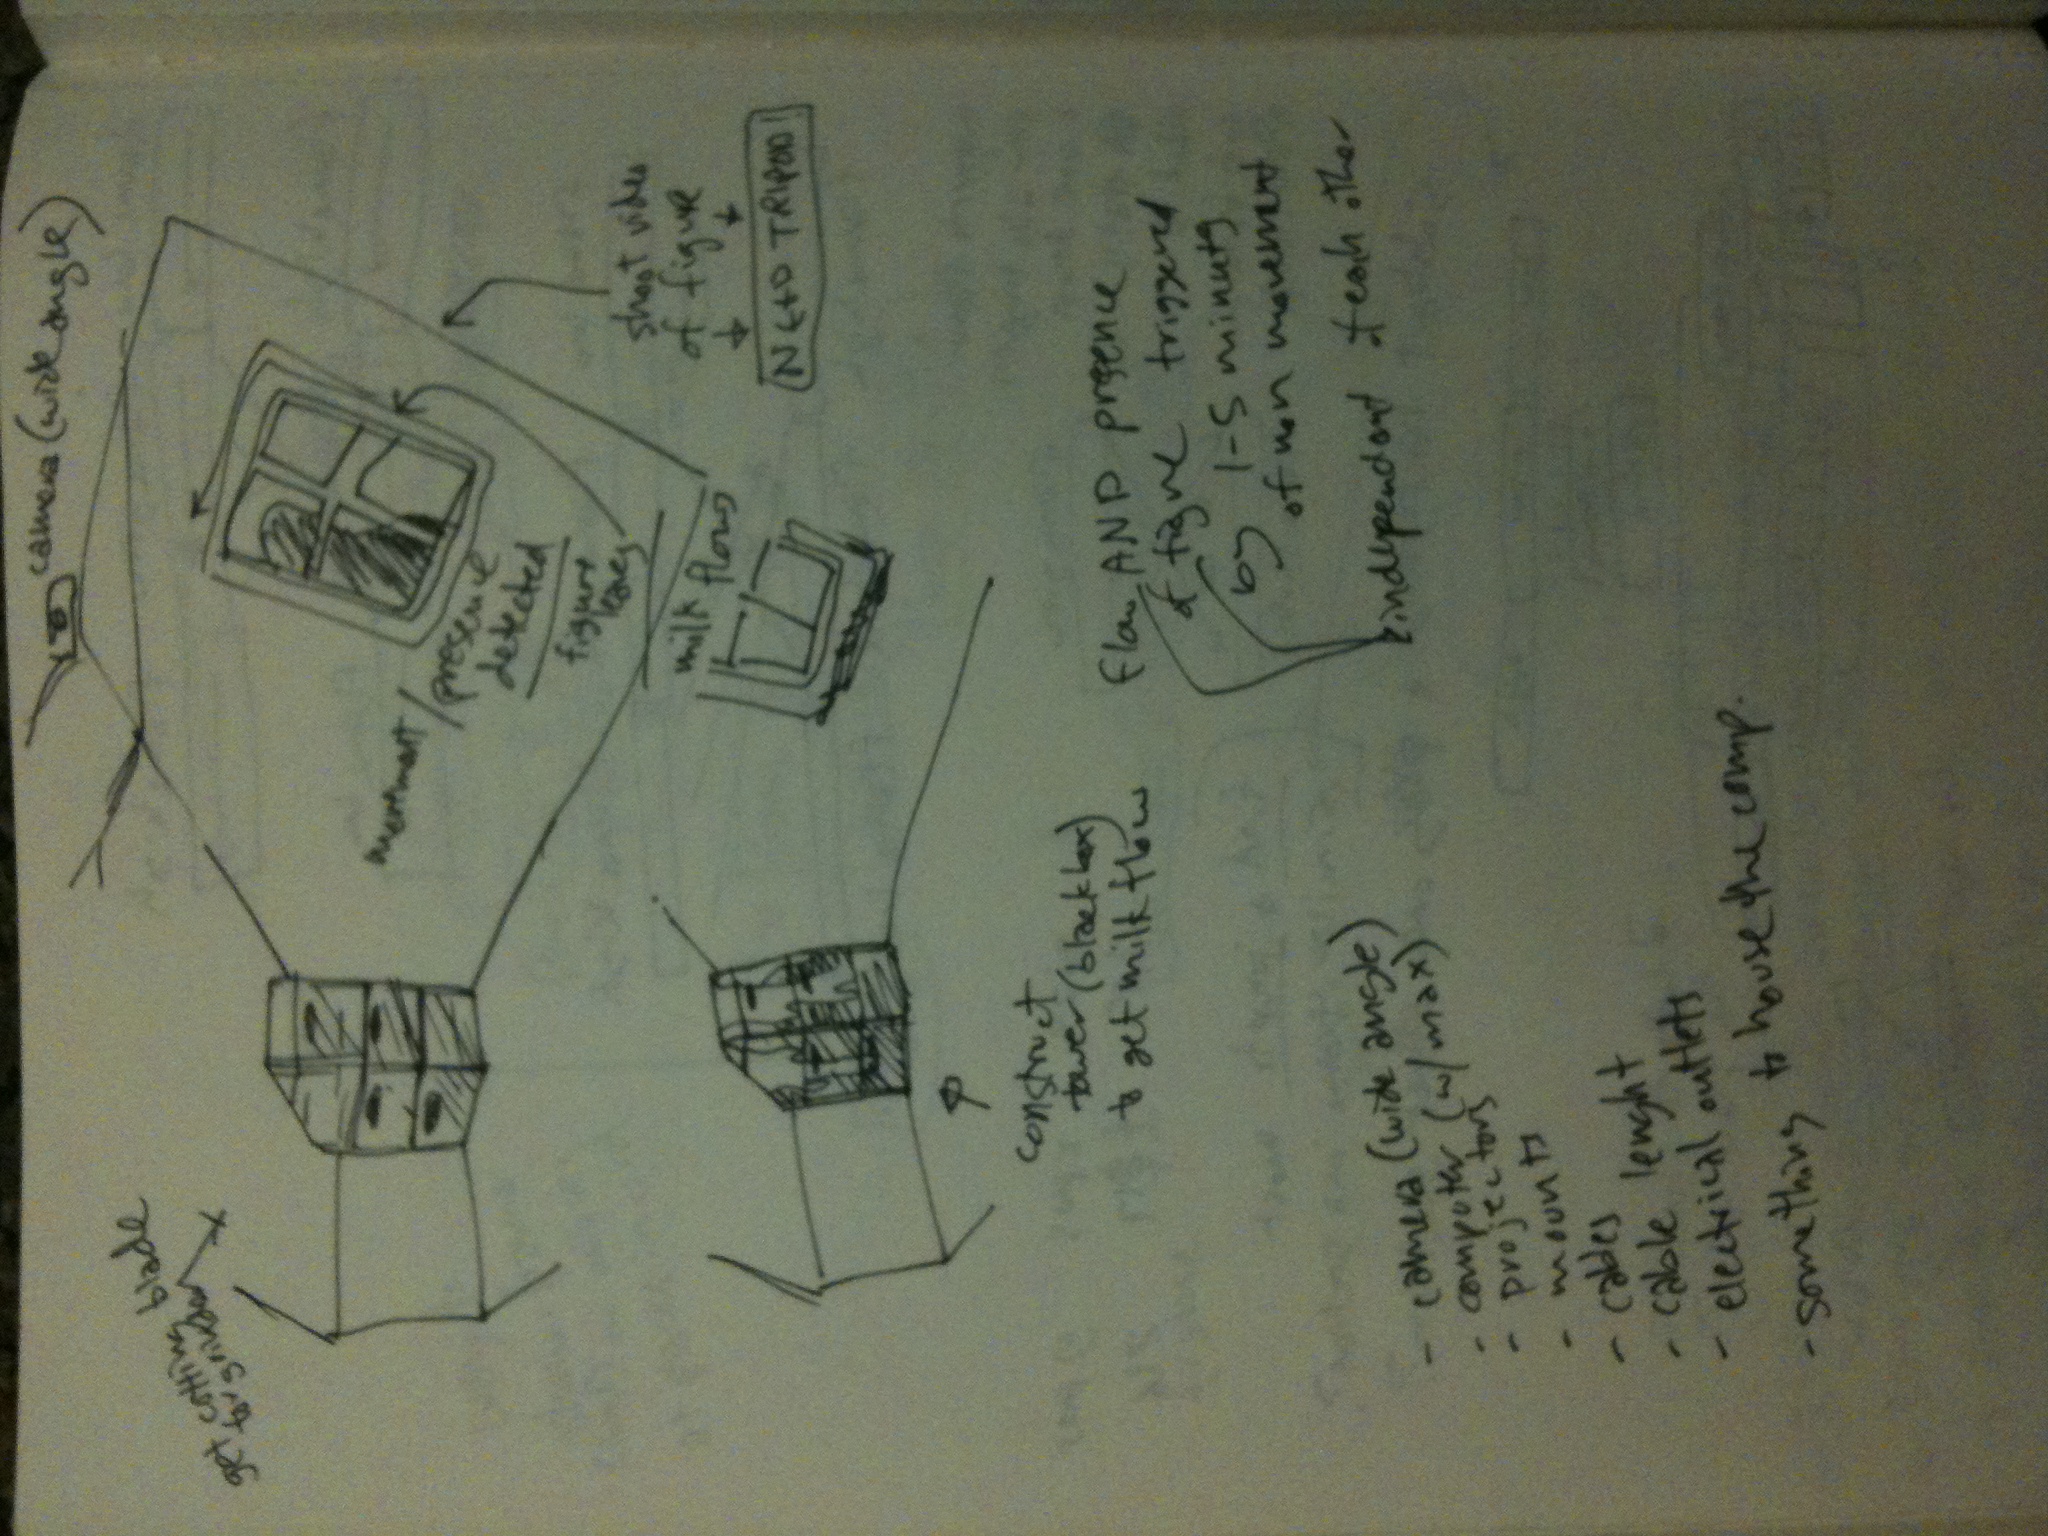 camera (wide angle)
get cutting blade
for sniden
movement
/presence
detected
figure
leaves
milk flows
shoot video
of figure
NEED TRIPOD!
construct
tower (black box)
to get milk flow
flow AND presence
of figure triggered
by 1-5 minutes
of non movement
independant of each other
- camera (wide angle)
- computer (w/ max)
- projectors
- mounts
- cables
- cable lenght
- electrical outlets
- something to house the comp.